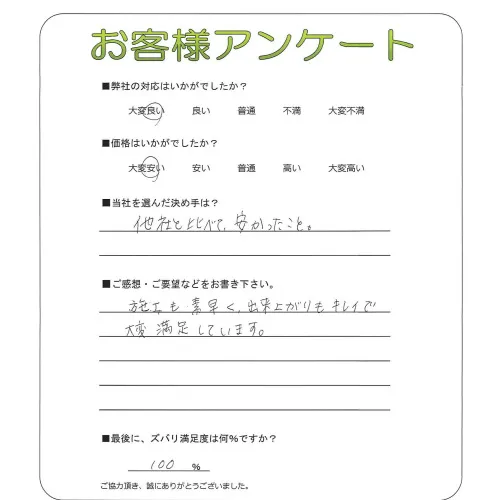 お客様アンケート
■弊社の対応はいかがでしたか?
大変良い 良い 普通 不満 大変不満
■価格はいかがでしたか?
大変安い 安い 普通 高い 大変高い
■当社を選んだ決め手は?
他社と比べて、安かったこと。
■ご感想・ご要望などをお書き下さい。
施工も素早く、出来上がりもキレイで
大変満足しています。
■最後に、ズバリ満足度は何%ですか?
100 %
ご協力頂き、誠にありがとうございました。